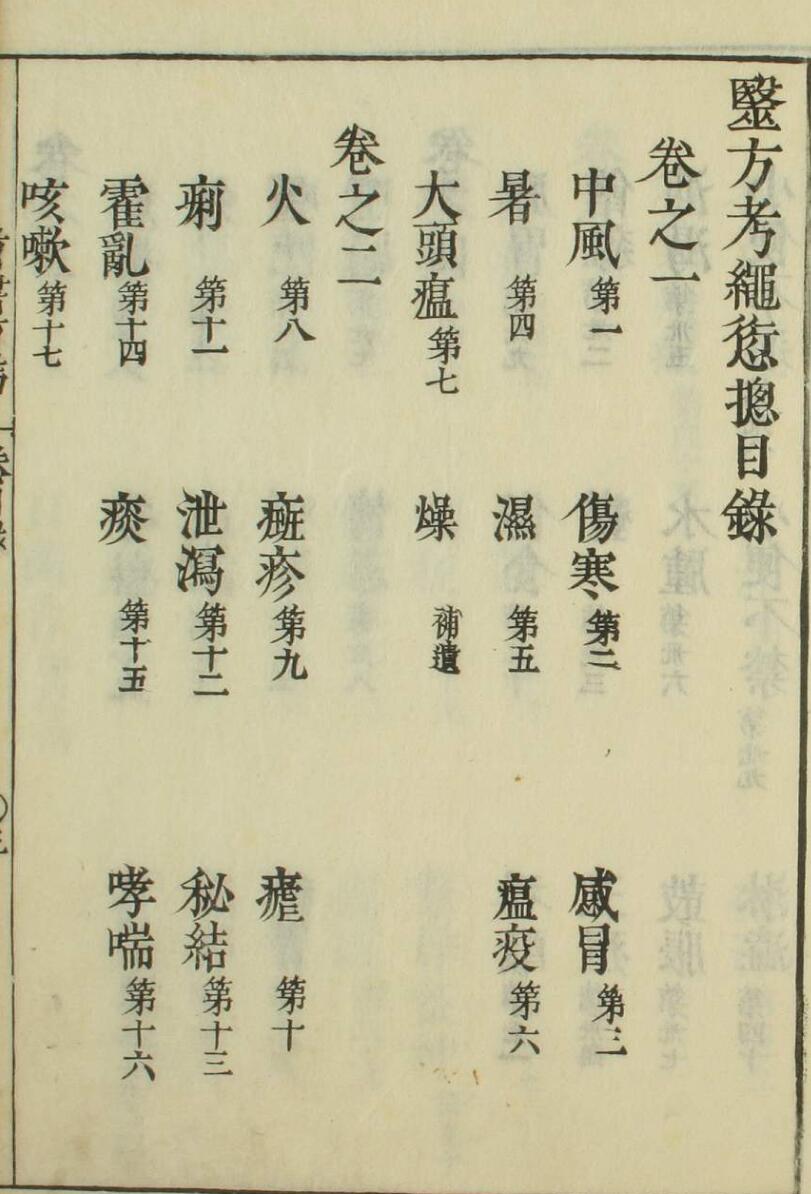 毉方考繩愆摠目錄
卷之一
中風 第一 傷寒 第二 感冒 第三
暑 第四 濕 第五 瘟疫 第六
大頭瘟 第七 燥 補遺
卷之二
火 第八 斑疹 第九 瘧 第十
痢 第十一 泄瀉 第十二 秘結 第十三
霍亂 第十四 痰 第十五 哮喘 第十六
咳嗽 第十七